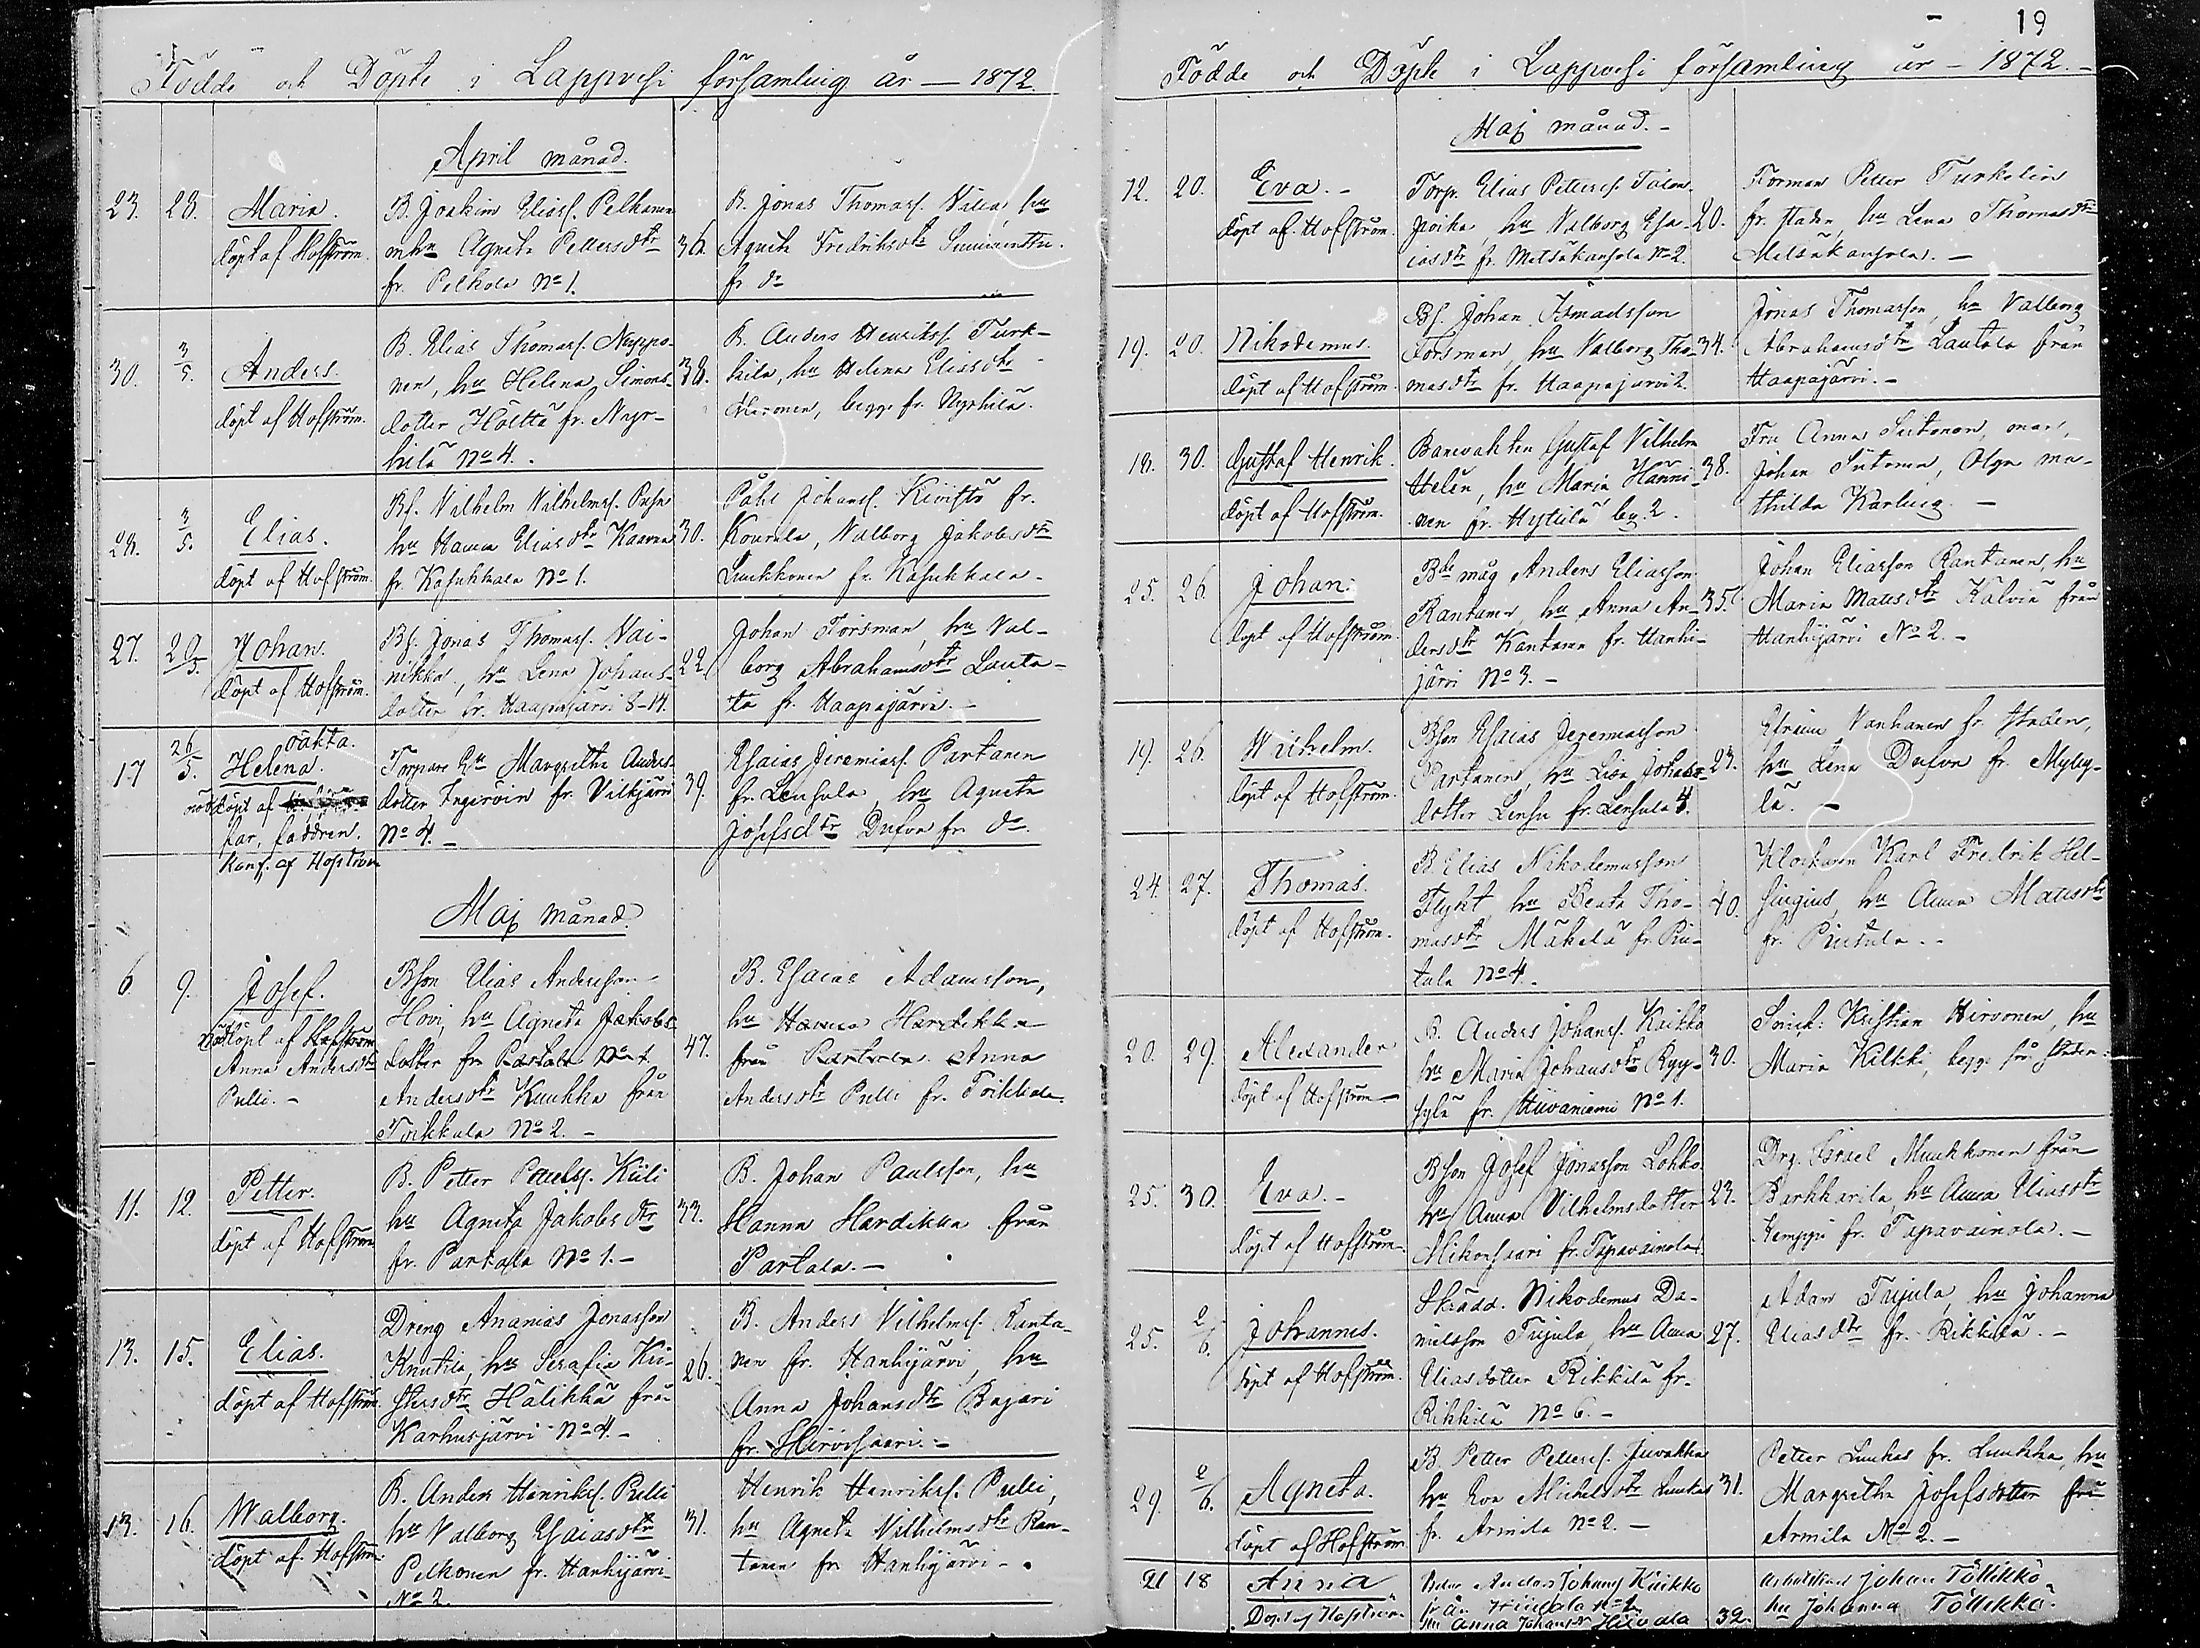 Födde och Döpte i Lappvesi församling år — 1872.
April månad.
23. 28. Maria.
döpt af Hofström.
B. Joakim Eliass. Pelkonen
m hu Agneta Pettersdtr 36.
fr. Pelkola No 1.
B. Jonas Thomass. hu
Agneta Fredriksdtr
fr do
30. 3/5. Anders.
döpt af Hofström.
B. Elias Thomass. Nuppo-
nen, hu Helena Simons- 38.
dotter Hölttä fr.
No 4.
B. Anders Henrikss. Turk-
kila, hu Helena Eliasdtr
begge fr.
28. 3/5. Elias.
döpt af Hofström.
Bs. Vilhelm Vilhelmss.
hu Hanna Eliasdtr 30.
fr. Kasukkala No 1.
Påhl Johanss. Kiviftö fr.
Kourula, Valborg Jakobsdtr
Luukkonen fr. Kasukkala
27. 20/5. Johan.
döpt af Hofström.
Bs. Jonas Thomass. Vai-
nikka, hu Lena Johans- 22.
dotter fr. Haapajärvi 8-14.
Johan Forsman, hu Val-
borg Abrahamsdtr Lauta-
la fr. Haapajärvi.
17 26/5. oäkta.
Helena.
nöddöpt af
far, faddren.
Konf. af Hofström
Torpare En Margretha Anders
dotter Ingeroin fr. Vilkjärvi 39.
No 4.
Esaias Jeremiass. Partanen
fr. Lensula, hu Agneta
Josefsdtr Dufva fr. do
Maj månad.
6. 9. Josef.
nöddöpt af Hofström
Anna Andersdtr
Pulli.
Bson Elias Andersson
Hovi, hu Agneta Jakobs
dotter fr. Partala No 1. 47.
Andersdtr Kuukka från
Toikkala No 2.
B. Esaias Adamsson,
hu Hanna Hardikka
från Partala. Anna
Andersdtr Pulli fr. Toikkala.
11. 12. Petter.
döpt af Hofström
B. Petter Paulss. Kiili
hu Agneta Jakobsdtr 33.
fr. Partala No 1.
B. Johan Paulsson, hu
Hanna Hardikka från
Partala.
13. 15. Elias.
döpt af Hofström.
Dreng Ananias Jonasson
Knutila, hu Serafia Kri- 26.
stersdtr Hälikkä från
Karhusjärvi No 4.
B. Anders Vilhelmss. Ranta-
nen fr. Hanhijärvi, hu
Anna Johansdtr Bajari
fr. Hirvisaari.
13. 16. Walborg.
döpt af Hofström.
B. Anders Henrikss. Pulli
hu Valborg Esaiasdtr 31.
Pelkonen fr. Hanhijärvi
No 2.
Henrik Henrikss. Pulli,
hu Agneta Vilhelmsdtr Ran-
tanen fr. Hanhijärvi.
19
Födde och Döpte i Lappvesi församling år — 1872.
Maj månad.
12. 20. Eva.
döpt af Hofström.
Torp. Elias Petterss. Talon
poika, hu Valborg Esa- 20.
iasdtr fr. Metsäkansola No 2.
Forman Petter Turkelin
fr. staden, hu Lena Thomasdtr
Metsäkansola.
19. 20. Nikodemus.
döpt af Hofström
Bs. Johan
Forsman, hu Valborg Tho- 34.
masdtr fr. Haapajärvi 2.
Jonas Thomasson, hu Valborg
Abrahamsdtr Lautala från
Haapajärvi.
18. 30. Gustaf Henrik.
döpt af Hofström.
Banevakten Gustaf Vilhelm
Helén, hu Maria Hänni- 38.
nen fr. Hytulä by. 2.
Fru Anna man,
Johan Olga Ma-
thilda Karling.
25. 26. Johan.
döpt af Hofström.
Bde måg Anders Eliasson
Rantanen, hu Anna An- 35.
dersdtr Rantanen fr. Hanhi-
järvi No 3.
Johan Eliasson Rantanen, hu
Maria Matsdtr Kälviä från
Hanhijärvi No 2.
19. 26. Wilhelm.
döpt af Hofström.
Bson Esaias Jeremiasson
Partanen, hu Lisa Johans- 23.
dotter Lensu fr. Lensula 4.
Efraim Vanhanen fr. staden,
hu Lena Dufva fr. Mylly-
lä.
24. 27. Thomas.
döpt af Hofström.
B. Elias Nikodemusson
Flykt, hu Beata Tho- 40.
masdtr Mäkelä fr. Piu-
tula No 4.
Klockaren Karl Fredrik Hel-
singius, hu Anna Matsdtr
fr. Piutula.
20. 29. Alexander
döpt af Hofström
B. Anders Johanss. Kaikko
hu Maria Johansdtr Ryy- 30.
sylä fr. Hiivaniemi No 1.
Smed: Kristian Hirvonen, hu
Maria Kilkki, begge från staden.
25. 30. Eva.
döpt af Hofström.
Bson Josef Jonasson Lohko
hu Anna Vilhelmsdotter 23.
Mikonsaari fr. Tapavainola.
Drg. Israel Muukkonen från
Karkkarila, hu Anna Eliasdtr
Kemppi fr. Tapavainola.
25. 2/6. Johannes.
döpt af Hofström.
Skrädd. Nikodemus Da-
nielsson Tujula, hu Anna 27.
Eliasdotter Rikkilä fr.
Rikkilä No 6.
Adam Tujula, hu Johanna
Eliasdtr fr. Rikkilä.
29. 2/6. Agneta.
döpt af Hofström
B. Petter Petterss. Juvakka
hu Eva Michelsdtr Luukas 31.
fr. Armila No 2.
Petter Luukas fr. Luukka, hu
Margretha Josefsdotter från
Armila No 2.
21 18 Anna
Döpt af Hofström.
Anders Johanss Kuikko
från Hiivala No 1
hu Anna Johansdr Hiivala 32.
Johan Töllikkö
hu Johanna Töllikkö.